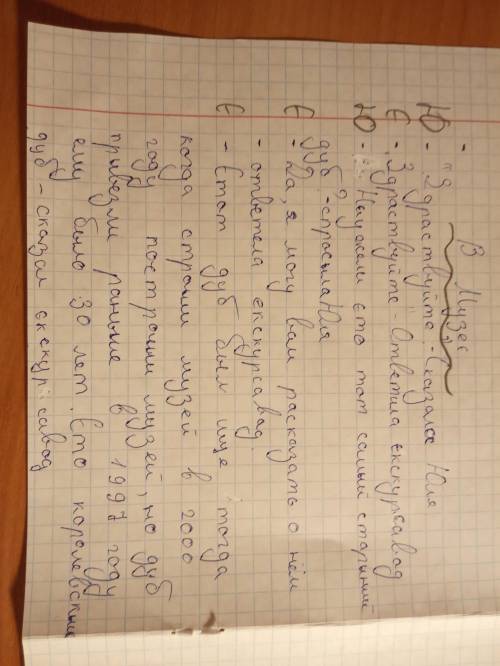 В Музее
Ю - "Здраствуйте - Сказала Юля
Е - Здраствуйте - Ответила екскурсавод
Ю - Ныужели ето тот самый старынний
дуб? - спросыла Юля
Е - Да, я могу вам расказать о нём
- ответела екскурсавод.
Е - Етот дуб был ище тогда
когда строили музей в 2000
году построили музей, но дуб
прывезли раньше в 1997 году
ему было 30 лет. Ето королевский
дуб - сказал екскурсавод